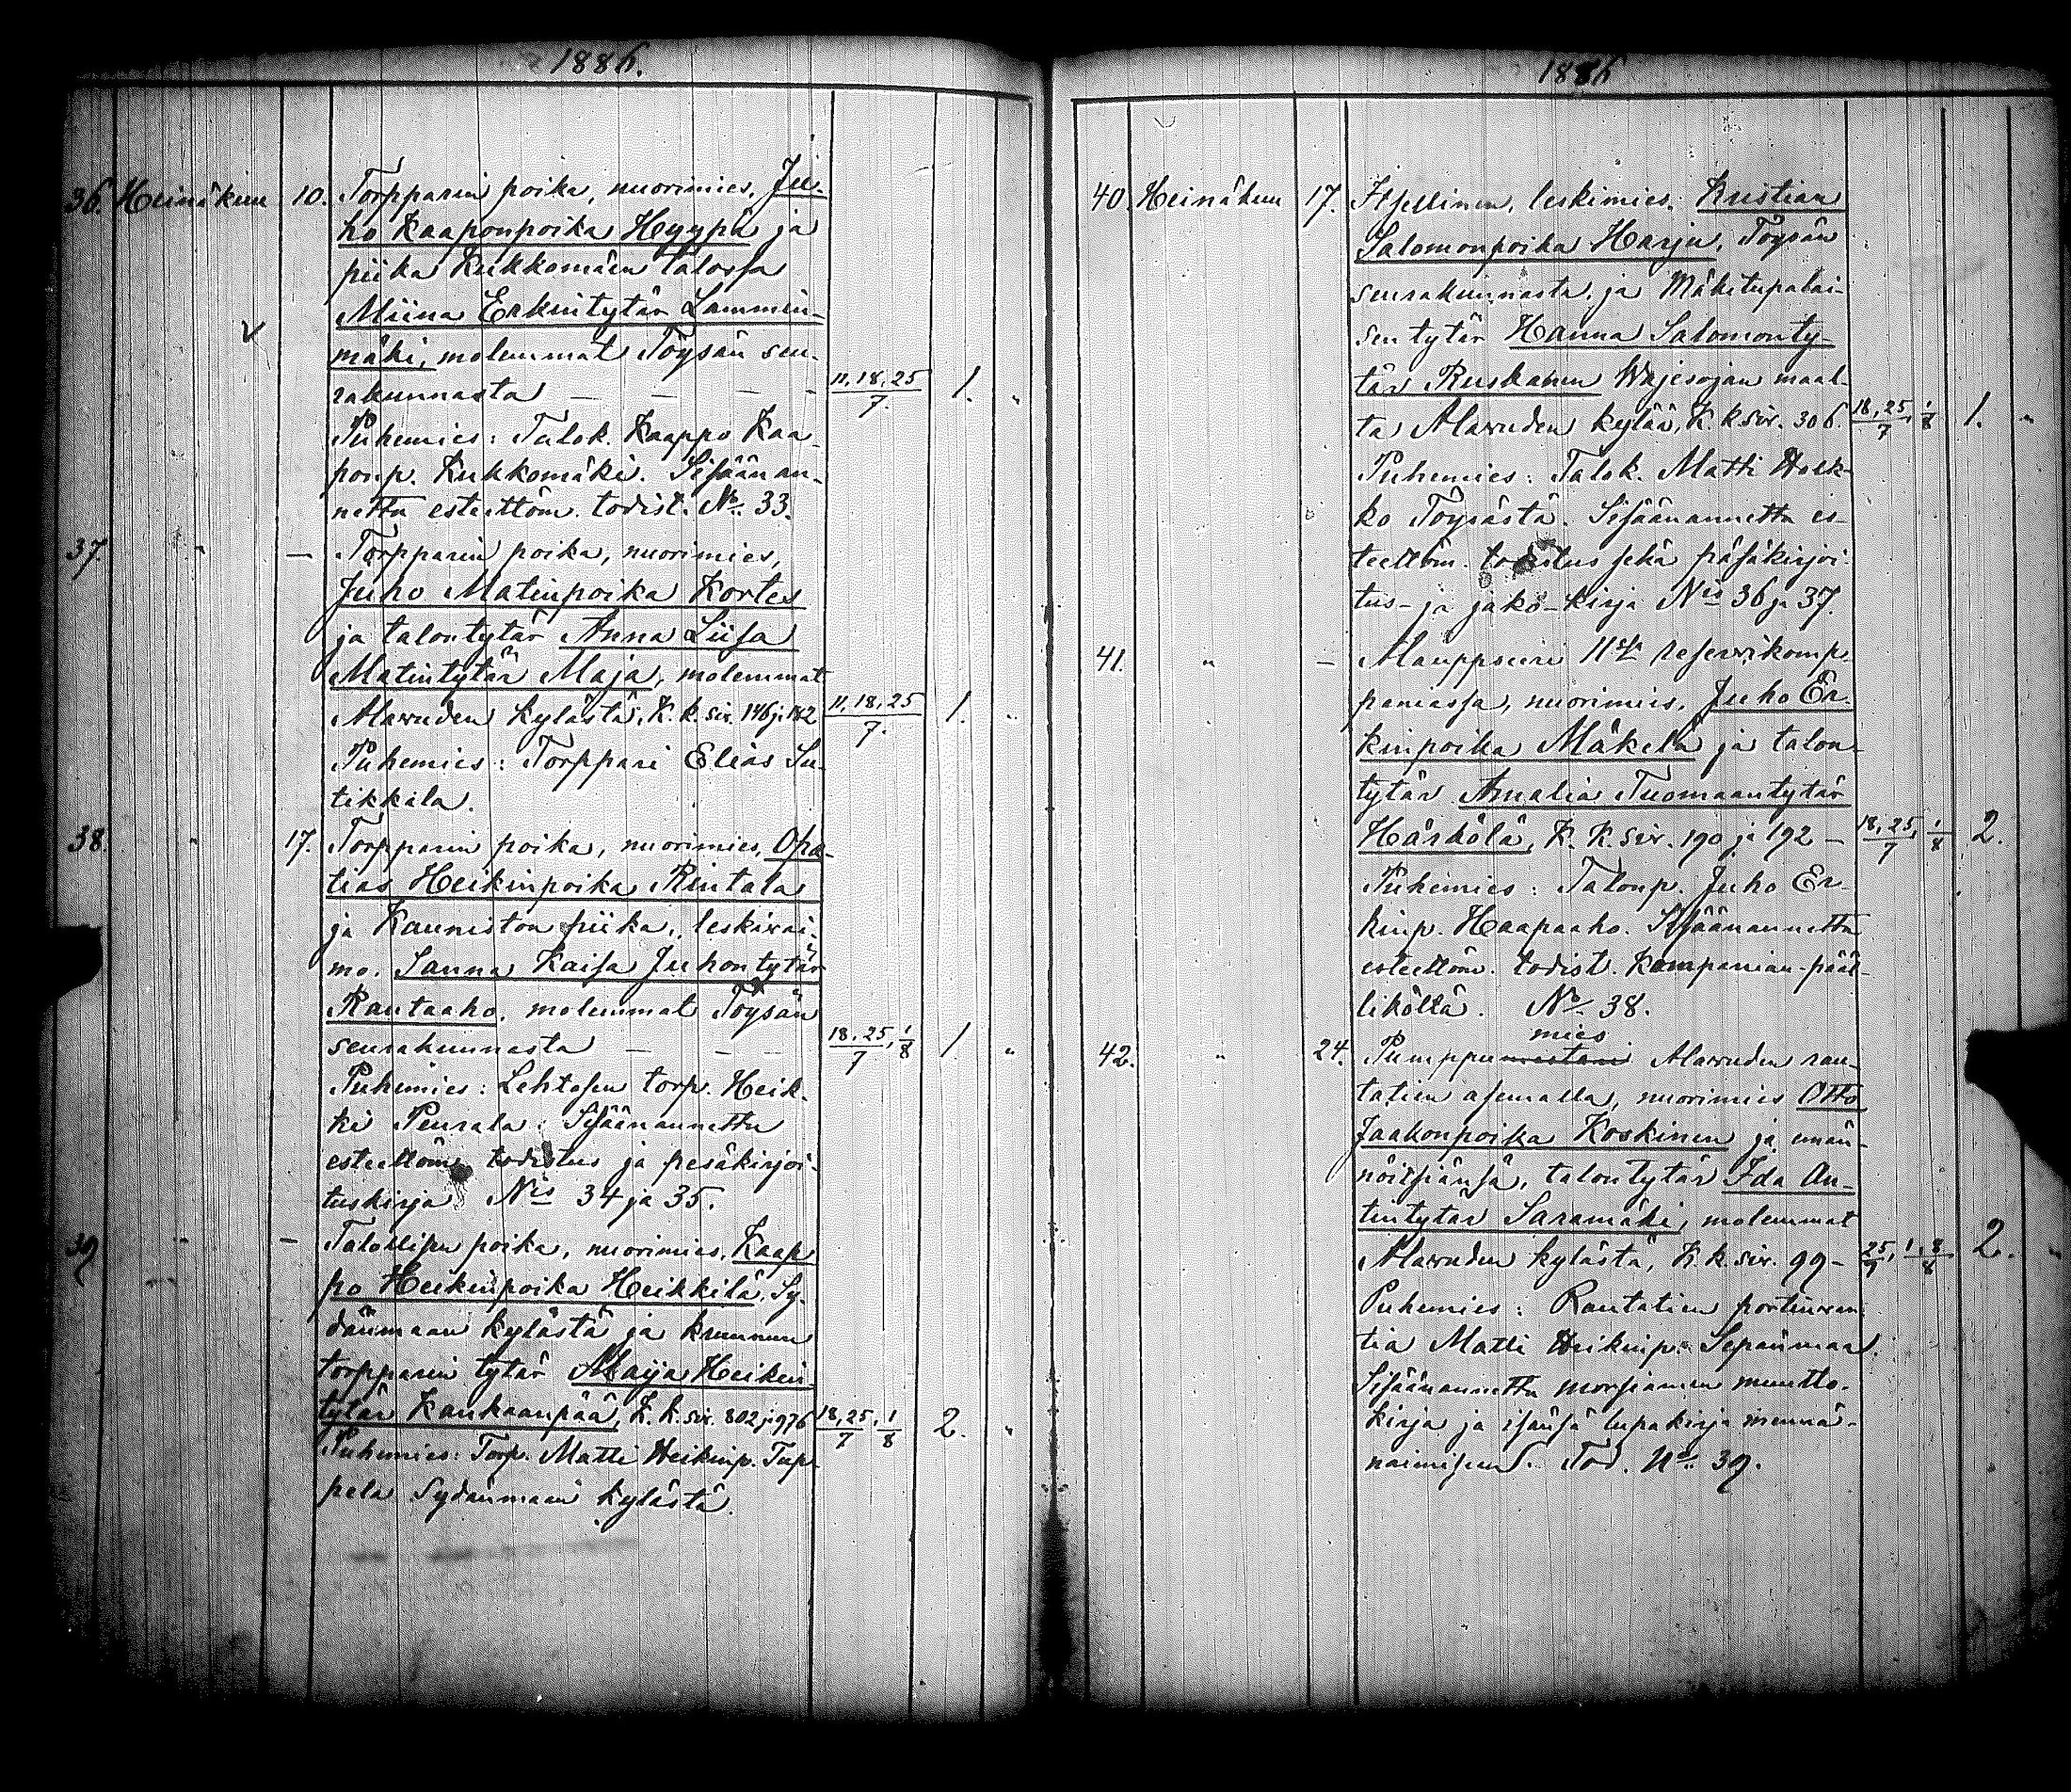 1886.
36. Heinäkuu 10. Torpparin poika, nuorimies, Ju-
ho Kaaponpoika Hyypä ja
piika Kukkomäen talossa
Miina Erkintytär Lammin-
mäki, molemmat Töysän seu-
rakunnasta — — — 11, 18, 25/7. 1. "
Puhemies: Talok. Kaappo Kaa-
ponp. Kukkomäki. Sisäänan-
nettu esteettöm. todist. No. 33.
37. " — Torpparin poika, nuorimies,
Juho Matinpoika Kortes
ja talontytär Anna Liisa
Matintytär Maja, molemmat
Alavuden kylästä, K. k. siv. 146 ja 182 11, 18, 25/7. 1. "
Puhemies: Torppari Elias Su-
tikkala.
38. " 17. Torpparin poika, nuorimies, Opa-
tias Heikinpoika Rintala
ja Kauniston piika, leskivai-
mo, Sanna Kaisa Juhontytär
Rautaaho, molemmat Töysän
seurakunnasta — — — 18, 25/7, 1/8 1 "
Puhemies: Lehtosen torp. Heik-
ki Peurala. Sisäänannettu
esteettöm. todistus ja pesäkirjoi-
tuskirja Nis 34 ja 35.
39 " — Talollisen poika, nuorimies, Kaap
po Heikinpoika Heikkilä, Sy-
dänmaan kylästä ja kruunun
torpparin tytär Maija Heikin-
tytär Kankaanpää, K. k. siv. 802 ja 976 18, 25/7, 1/8 2. "
Puhemies: Torp. Matti Heikinp. Tup-
pela Sydänmaan kylästä.
1886
40. Heinäkuu 17. Itsellinen, leskimies, Kustian
Salomonpoika Harju, Töysän
seurakunnasta, ja Mäkitupalai-
sen tytär Hanna Salomonty-
tär Ruskanen maal-
ta Alavuden kylää, K. k. siv. 306. 18, 25/7, 1/8 1. "
Puhemies: Talok. Matti Holk-
ko Töysästä. Sisäänannettu es-
teettöm. todistus sekä päsäkirjoi-
tus- ja jako-kirja Nis 36 ja 37.
41. " — Alauppseeri 11sta reservikomp-
paniassa, nuorimies, Juho Er-
kinpoika Mäkelä ja talon-
tytär Amalia Tuomaantytär
Härkölä, K. K. siv. 190 ja 192 — 18, 25/7, 1/8 2.
Puhemies: Talonp. Juho Er-
kinp. Haapaaho. Sisäänannettu
esteettöm. todist. Kompanian-pääl-
liköltä. No. 38.
mies
42. " 24. Pumppumestari Alavuden rau-
tatien asemalla, nuorimies Otto
Jaakonpoika Koskinen ja emän-
nöitsiänsä, talontytär Ida An-
tintytär Saramäki, molemmat
Alavuden kylästä, K. k. siv. 99 - 25/7, 1, 8/8 2. "
Puhemies: Rautatien portinvar-
tia Matti Heikinp. Sepänmaa.
Sisäänannettu morsiamen muutto-
kirja ja isänsä lupakirja mennä
naimiseen. Tod. No. 39.